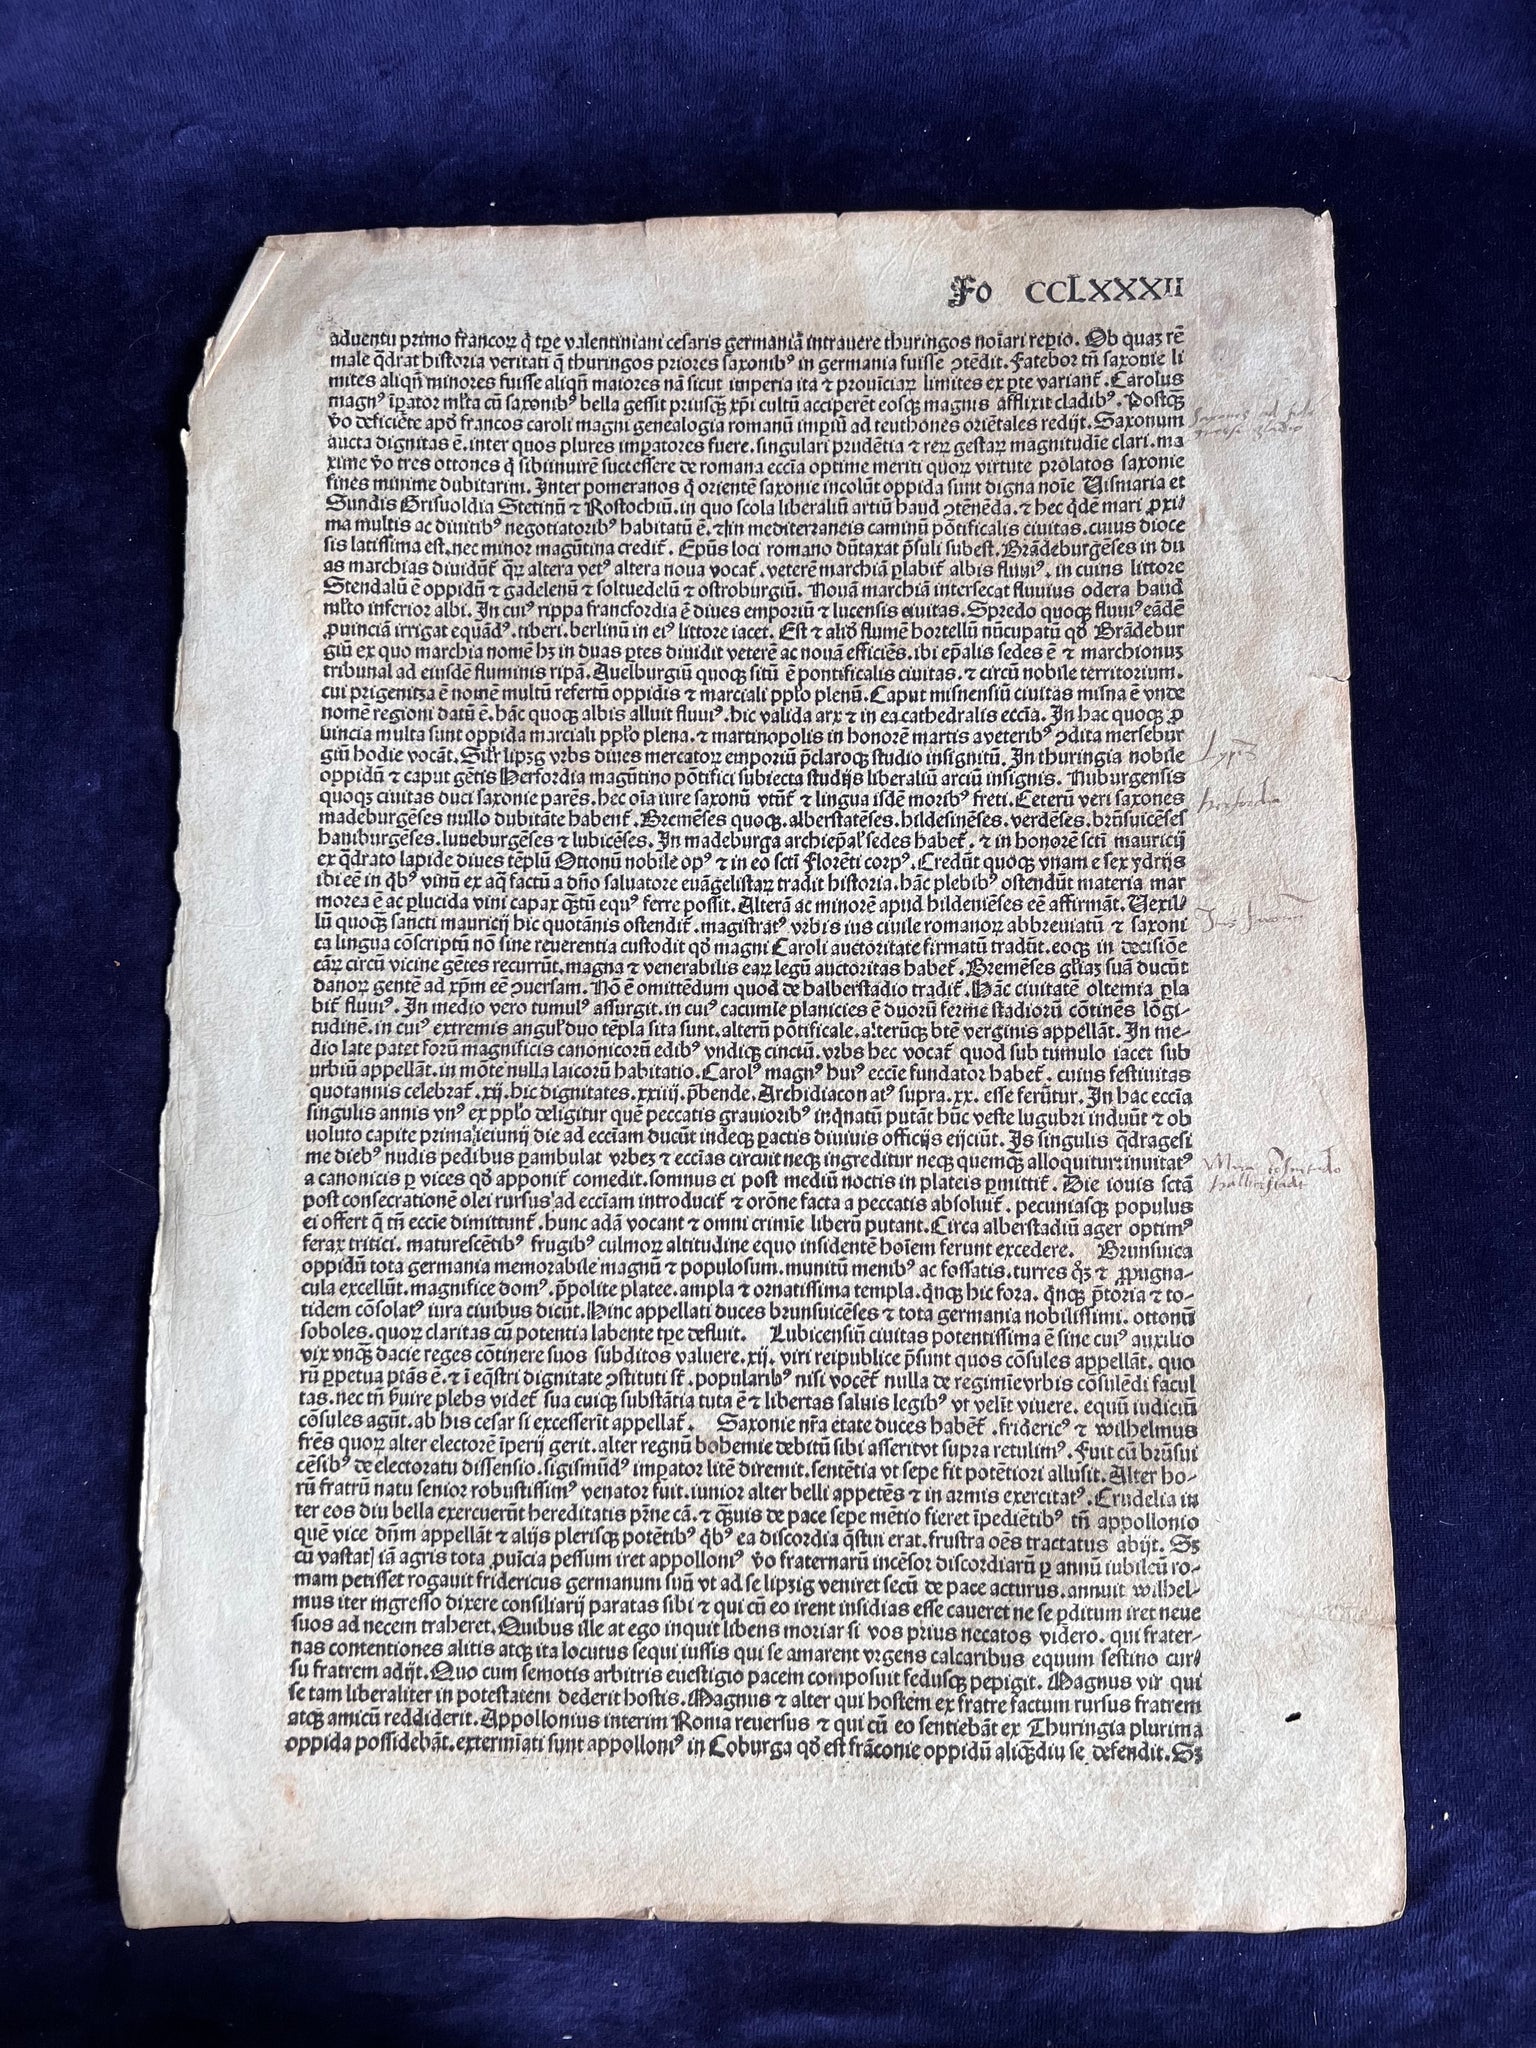 Fo CCLXXXII
aduentu primo francoꝝ q̇ tꝑe valentiniani cesaris germaniā intrauere thuringos noīari reꝑio. Ob quaꝫ rē
male q̄drat historia veritati q̄ thuringos priores saxonibꝰ in germania fuisse ꝯtēdit. Fatebor tn̄ saxonie li
mites aliqn̄ minores fuisse aliqn̄ maiores nā sicut imperia ita ⁊ prouīciaꝝ limites ex ꝑte variant᷑. Carolus
magnꝰ īꝑator ml̓ta cū saxonibꝰ bella gessit priusqꝫ xp̄i cultū acciperēt eosqꝫ magnis afflixit cladibꝰ. Postqꝫ
v̊o deficiēte apd̓ francos caroli magni genealogia romanū imꝑiū ad teuthones oriētales redijt. Saxonum
aucta dignitas ē. inter quos plures imꝑatores fuere. singulari prudētia ⁊ reꝝ gestaꝝ magnitudīe clari. ma
xime v̊o tres ottones q̇ sibiinuirē successere de romana eccīa optime meriti quoꝝ virtute prolatos saxonie
fines minime dubitarim. Inter pomeranos q̇ orientē saxonie incolūt oppida sunt digna noīe Uismaria et
Sundis Grisuoldia Stetinū ⁊ Rostochiū. in quo scola liberaliū artiū haud ꝯtēnēda. ⁊ hec q̇dē mari ꝓxi
ma multis ac diuitibꝰ negotiatoribꝰ habitatū ē. ⁊ in mediterraneis caminū pōtificalis ciuitas. cuius dioce
sis latissima est. nec minor magūtina credit᷑. Ep̄us loci romano dūtaxat p̄suli subest. Brādeburgēses in du
as marchias diuidūt᷑ qꝝ altera vetꝰ altera noua vocat᷑. veterē marchiā ꝑlabit᷑ albis fluuiꝰ. in cuius littore
Stendalū ē oppidū ⁊ gadelenū ⁊ soltuedelū ⁊ ostroburgiū. Nouā marchiā intersecat fluuius odera haud
ml̓to inferior albi. In cuiꝰ rippa francfordia ē diues emporiū ⁊ lucensis ciuitas. Spredo quoqꝫ fluuiꝰ eādē
ꝓuinciā irrigat equādꝰ. tiberi. berlinū in eiꝰ littore iacet. Est ⁊ aliꝺ flumē hortellū nūcupatū qꝺ Brādebur
giū ex quo marchia nomē hꝫ in duas ꝑtes diuidit veterē ac nouā efficiēs. ibi ep̄alis sedes ē ⁊ marchionuꝫ
tribunal ad eiusdē fluminis ripā. Auelburgiū quoqꝫ sitū ē pontificalis ciuitas. ⁊ circū nobile territorium.
cui prigenitza ē nomē multū refertū oppidis ⁊ marciali ppl̓o plenū. Caput misnensiū ciuitas misna ē vnde
nomē regioni datū ē. hāc quoqꝫ albis alluit fluuiꝰ. hic valida arx ⁊ in ea cathedralis eccīa. In hac quoqꝫ ꝓ
uincia multa sunt oppida marciali ppl̓o plena. ⁊ martinopolis in honorē martis a veteribꝰ ꝯdita mersebur
giū hodie vocāt. Silr̄ lipzg vrbs diues mercatoꝝ emporiū p̄claroqꝫ studio insignitū. In thuringia nobile
oppidū ⁊ caput gētis Herfordia magūtino pōtifici subiecta studijs liberaliū arciū insignis. Nuburgensis
quoqꝫ ciuitas duci saxonie parēs. hec oīa iure saxonū vtūt᷑ ⁊ lingua isdē moribꝰ freti. Ceterū veri saxones
madeburgēses nullo dubitāte habent᷑. Bremēses quoqꝫ. alberstatēses. hildesinēses. verdēses. brūsuicēses
hamburgēses. luneburgēses ⁊ lubicēses. In madeburga archiep̄al̓ sedes habet᷑. ⁊ in honorē scti mauricij
ex q̄drato lapide diues tēplū Ottonū nobile opꝰ ⁊ in eo scti Florēti corpꝰ. Credūt quoqꝫ vnam e sex ydrijs
ibi eē in qb̓ꝰ vinū ex aq̄ factū a dn̄o saluatore euāgelistaꝝ tradit historia. hāc plebibꝰ ostendūt materia mar
morea ē ac ꝑlucida vini capax q̄tū equꝰ ferre possit. Alterā ac minorē apud hildeniēses eē affirmāt. Uexil
lū quoqꝫ sancti mauricij hic quotānis ostendit᷑. magistratꝰ vrbis ius ciuile romanoꝝ abbreuiatū ⁊ saxoni
ca lingua cōscriptū nō sine reuerentia custodit qꝺ magni Caroli auctoritate firmatū tradūt. eoqꝫ in decisiōe
cāꝝ circū vicine gētes recurrūt. magna ⁊ venerabilis eaꝝ legū auctoritas habet᷑. Bremēses gl̓iaꝫ suā ducūt
danoꝝ gentē ad xp̄m eē ꝯuersam. Nō ē omittēdum quod de halberstadio tradit᷑. Hāc ciuitatē oltemia ꝑla
bit᷑ fluuiꝰ. In medio vero tumulꝰ assurgit. in cuiꝰ cacumīe planicies ē duorū ferme stadiorū cōtinēs lōgi-
tudinē. in cuiꝰ extremis angul̓ duo tēpla sita sunt. alterū pōtificale. alterūqꝫ btē verginis appellāt. In me-
dio late patet forū magnificis canonicorū edibꝰ vndiqꝫ cinctū. vrbs hec vocat᷑ quod sub tumulo iacet sub
urbiū appellāt. in mōte nulla laicorū habitatio. Carolꝰ magnꝰ huiꝰ eccīe fundator habet᷑. cuius festiuitas
quotannis celebrat᷑. xij. hic dignitates. xxiiij. p̄bende. Archidiaconatꝰ supra. xx. esse ferūtur. In hac eccīa
singulis annis vnꝰ ex ppl̓o deligitur quē peccatis grauioribꝰ inq̇natū putāt hūc veste lugubri induūt ⁊ ob
uoluto capite prima ieiunij die ad eccīam ducūt indeqꝫ ꝑactis diuinis officijs eijciūt. Is singulis q̄dragesi
me diebꝰ nudis pedibus ꝑambulat vrbeꝫ ⁊ eccīas circuit neqꝫ ingreditur neqꝫ quemqꝫ alloquitur inuitatꝰ
a canonicis ꝑ vices qꝺ apponit᷑ comedit. somnus ei post mediū noctis in plateis ꝑmittit᷑. Die iouis sctā
post consecrationē olei rursus ad eccīam introducit᷑ ⁊ orōne facta a peccatis absoluit᷑. pecuniasqꝫ populus
ei offert q̄ tn̄ eccīe dimittunt᷑. hunc adā vocant ⁊ omni crimīe liberū putant. Circa alberstadiū ager optimꝰ
ferax tritici. maturescētibꝰ frugibꝰ culmoꝝ altitudine equo insidentē hoīem ferunt excedere. Brunsuica
oppidū tota germania memorabile magnū ⁊ populosum. munitū menibꝰ ac fossatis. turres qꝫ ⁊ ꝓpugna-
cula excellūt. magnifice domꝰ. p̄polite platee. ampla ⁊ ornatissima templa. q̇nqꝫ hic fora. q̇nqꝫ p̄toria ⁊ to-
tidem cōsolatꝰ iura ciuibus dicūt. Hinc appellati duces brunsuicēses ⁊ tota germania nobilissimi. ottonū
soboles. quoꝝ claritas cū potentia labente tꝑe defluit. Lubicensiū ciuitas potentissima ē sine cuiꝰ auxilio
vix vnqꝫ dacie reges cōtinere suos subditos valuere. xij. viri reipublice p̄sunt quos cōsules appellāt. quo
rū ꝑpetua ptās ē. ⁊ ī eq̄stri dignitate ꝯstituti st᷑. popularibꝰ nisi vocēt᷑ nulla de regimīe vrbis cōsulēdi facul
tas. nec tn̄ ẜuire plebs videt᷑ sua cuiqꝫ substātia tuta ē ⁊ libertas saluis legibꝰ vt velit viuere. equū iudiciū
cōsules agūt. ab his cesar si excesserīt appellat᷑. Saxonie nr̄a etate duces habēt᷑. fridericꝰ ⁊ wilhelmus
frēs quoꝝ alter electorē īperij gerit. alter regnū bohemie debitū sibi asserit vt supra retulimꝰ. Fuit cū brūsui
cēsibꝰ de electoratu dissensio. sigismūdꝰ imꝑator litē diremit. sentētia vt sepe fit potētiori allusit. Alter ho-
rū fratrū natu senior robustissimꝰ venator fuit. iunior alter belli appetēs ⁊ in armis exercitatꝰ. Crudelia in
ter eos diu bella exercuerūt hereditatis p̄rne cā. ⁊ q̄uis de pace sepe mētio fieret īpediētibꝰ tn̄ appollonio
quē vice dn̄m appellāt ⁊ alijs plerisqꝫ potētibꝰ qb̓ꝰ ea discordia q̄stui erat. frustra oēs tractatus abijt. Sꝫ
cū vastatꝭ iā agris tota ꝓuīcia pessum iret appolloniꝰ v̊o fraternarū incēsor discordiarū ꝑ annū iubileū ro-
mam petisset rogauit fridericus germanum suū vt ad se lipzig veniret secū de pace acturus. annuit wilhel-
mus iter ingresso dixere consiliarij paratas sibi ⁊ qui cū eo irent insidias esse caueret ne se ꝑditum iret neue
suos ad necem traheret. Quibus ille at ego inquit libens moriar si vos prius necatos videro. qui frater-
nas contentiones alitis atqꝫ ita locutus sequi iussis qui se amarent vrgens calcaribus equum festino cur
su fratrem adijt. Quo cum semotis arbitris euestigio pacem composuit fedusqꝫ pepigit. Magnus vir qui
se tam liberaliter in potestatem dederit hostis. Magnus ⁊ alter qui hostem ex fratre factum rursus fratrem
atqꝫ amicū reddiderit. Appollonius interim Roma reuersus ⁊ qui cū eo sentiebāt ex Thuringia plurima
oppida possidebāt. extermīati sunt appolloniꝰ in Coburga qꝺ est frāconie oppidū aliqꝫdiu se defendit. Sꝫ
Lypzg
herfordia
halberstadt